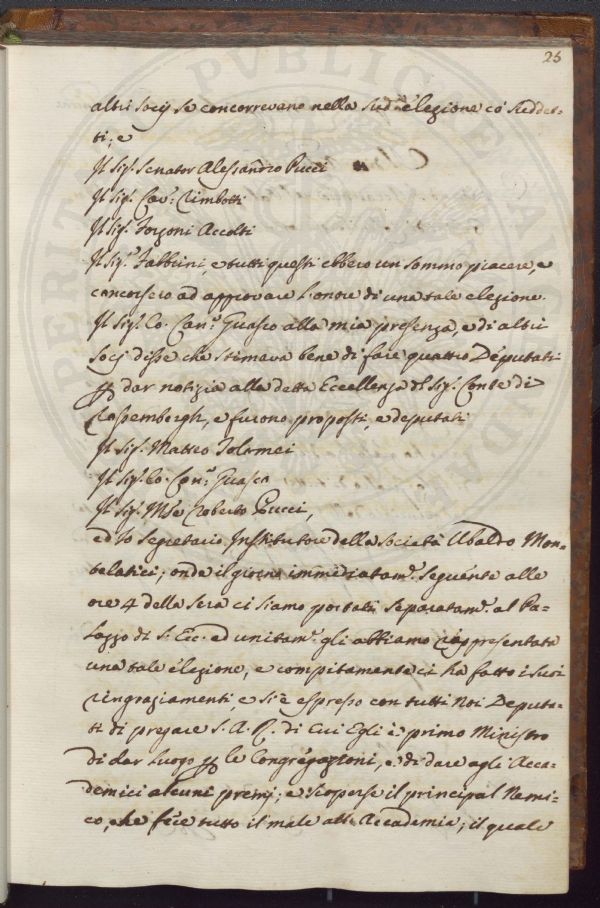 25
altri Socj se concorrevano nella sud.ª elezione co' suddet-
ti; e
Il Sig.r Senator Alessandro Pucci
Il Sig.r Cav.r Rimbotti
Il Sig.r Forzoni Accolti
Il Sig.r Fabbrini, e tutti questi ebbero un sommo piacere, e
concorsero ad approvare l'onore di una tale elezione.
Il Sig.r Co. Can.co Guasco alla mia presenza, e di altri
Socj disse che stimava bene di fare quattro Deputati
p dar notizia alla detta Eccellenza del Sig.r Conte di
Rosemberg h, e furono proposti, e deputati
Il Sig.r Matteo Tolomei
Il Sig.r Co. Can.co Guasco
Il Sig.r Mse Roberto Pucci,
ed Io Segretario Institutore della Società Ubaldo Mon-
telatici; onde il giorno immediatam.e seguente alle
ore 4 della sera ci siamo portati separatam.e al Pa-
lazzo di S. Ecc. ed unitam.e gli abbiamo rappresentata
una tale elezione, e compitamente ci ha fatto i suoi
ringraziamenti, e si è espresso con tutti noi Deputa-
ti di pregare S. A. R. di cui Egli è primo Ministro
di dar luogo p le Congregazioni, e di dare agli Acca-
demici alcuni premj; e scoperse il principal Nemi-
co, che fece tutto il male all'Accademia; il quale
PVBLICAE
PERITA